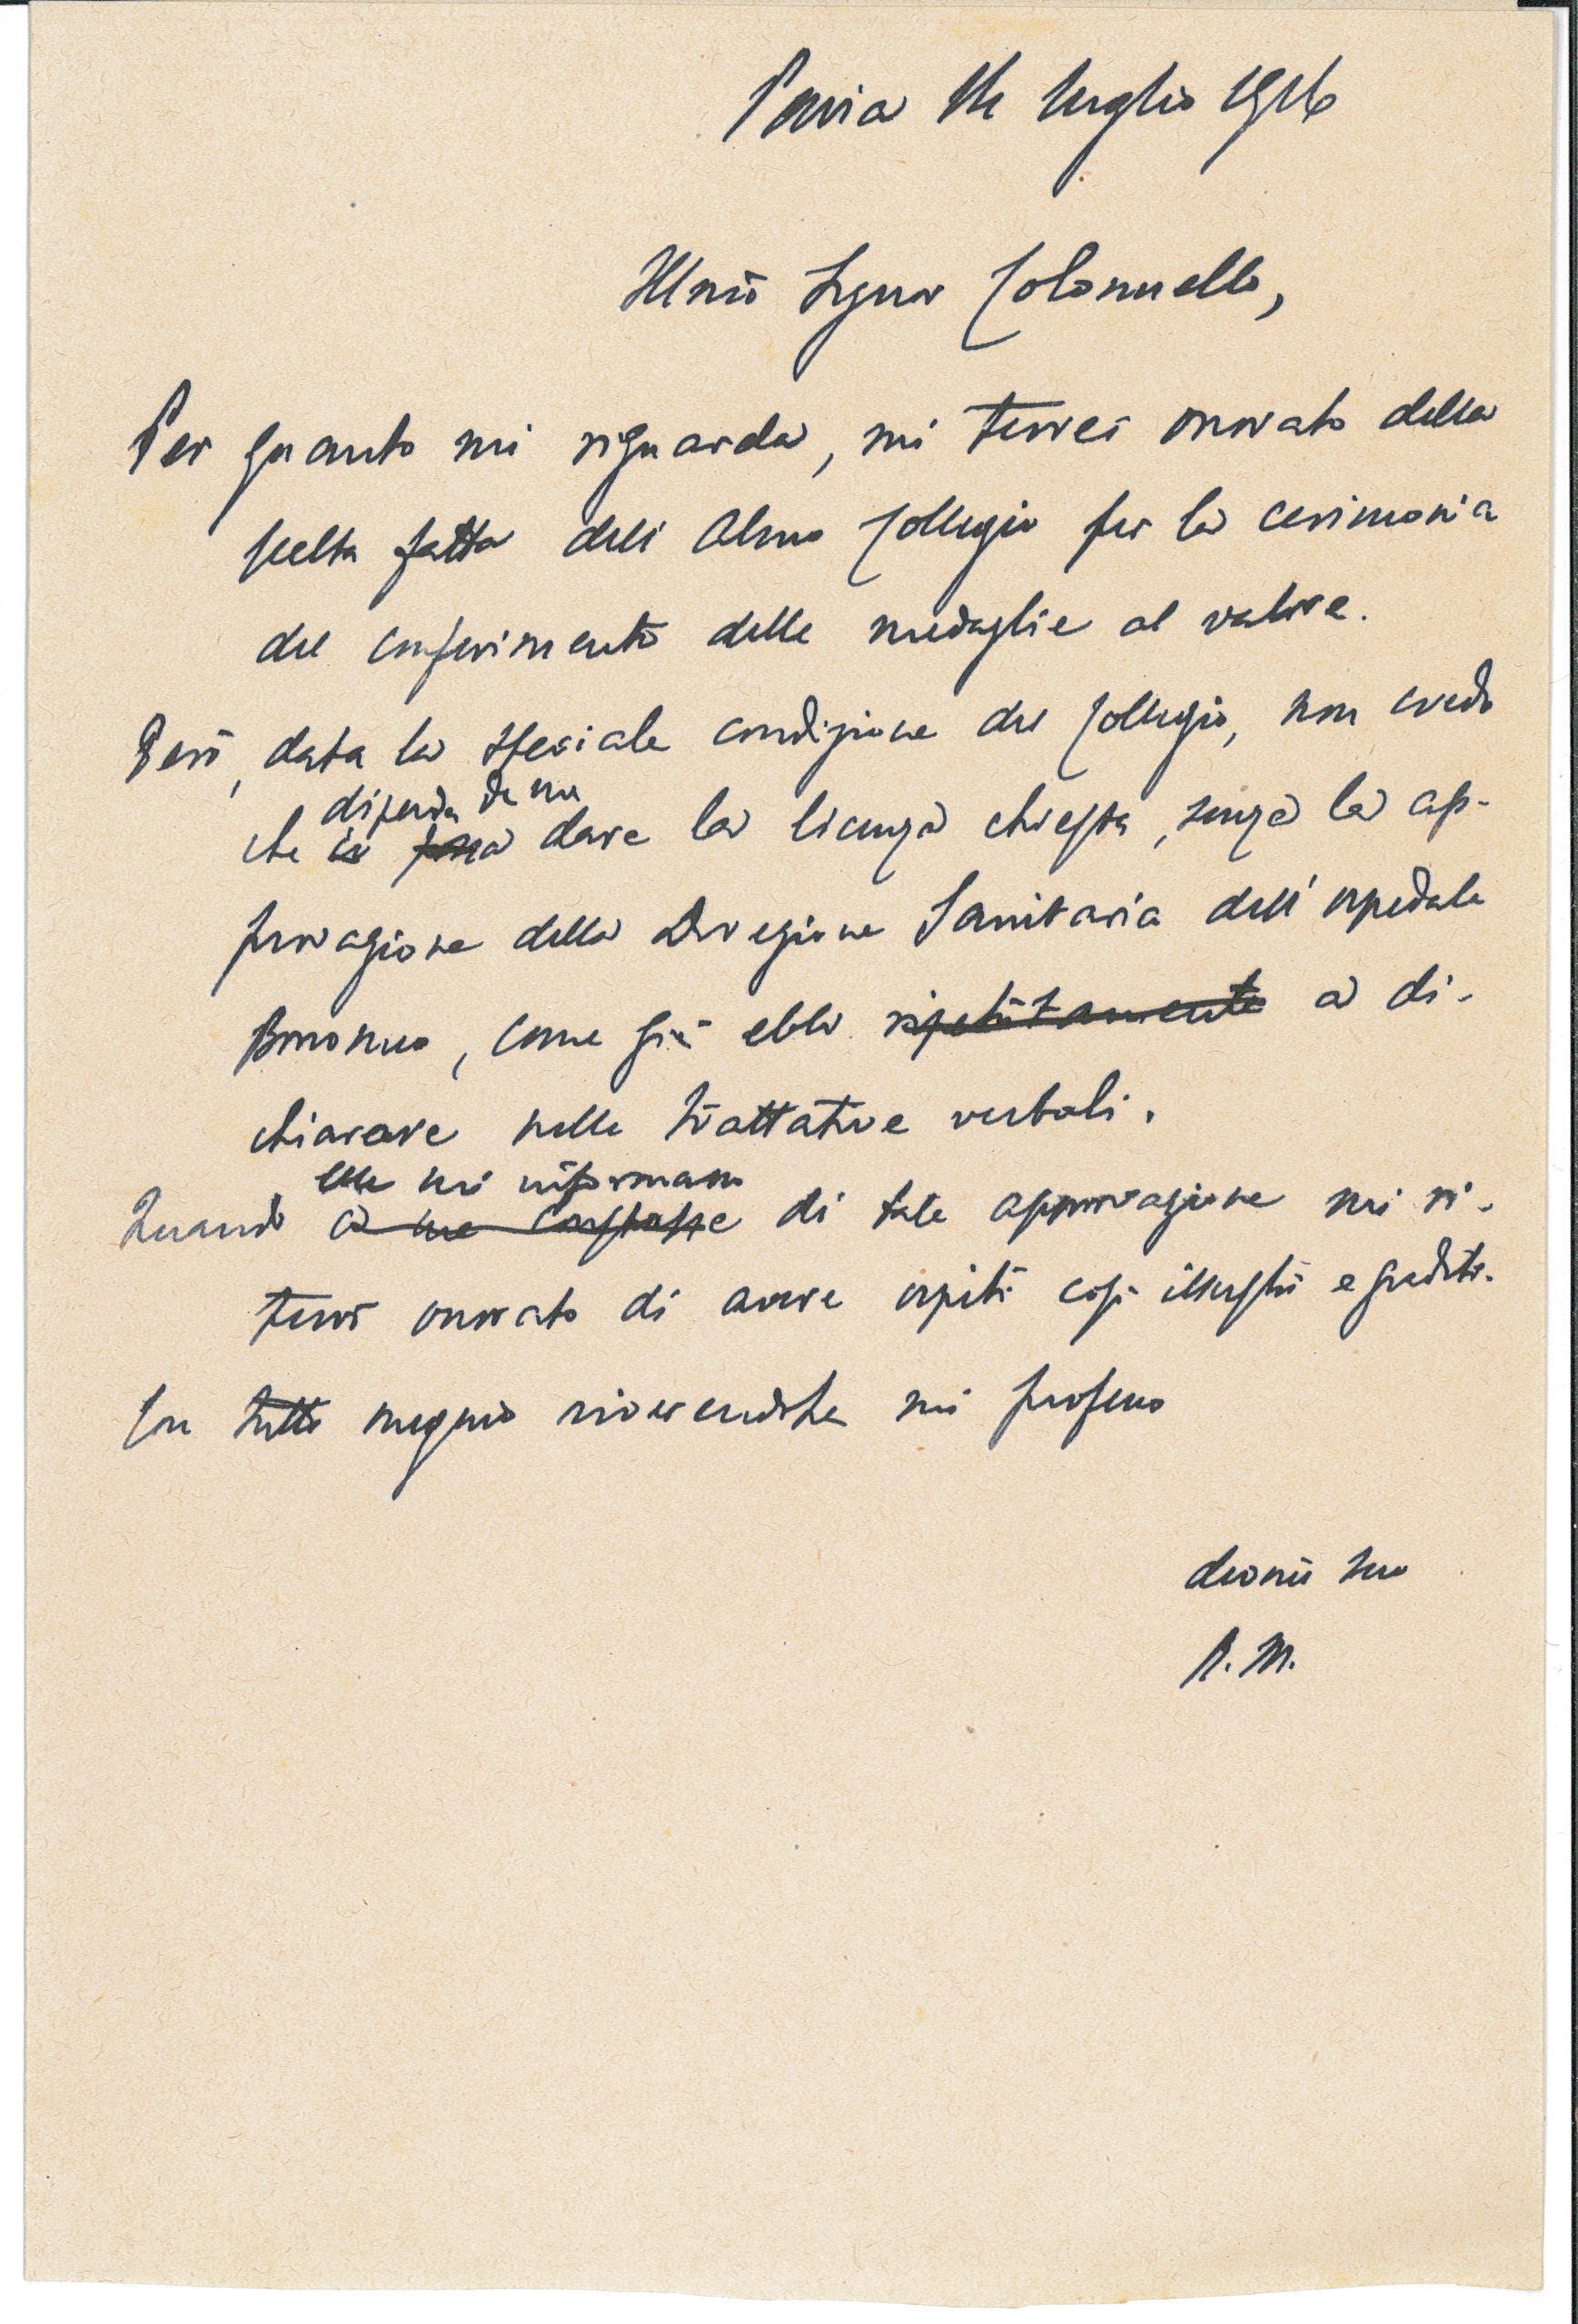 Pavia 14 luglio 1916
Illmo Signor Colonnello,
Per quanto mi riguarda, mi terrei onorato della
scelta fatta dell'Almo Collegio per la cerimonia
del conferimento delle medaglie al valore.
Però, data la speciale condizione del Collegio, non credo
dipenda da me
che io possa dare la licenza chiesta, senza la ap-
provazione della Direzione Sanitaria dell'ospedale
Borromeo, come già ebbi ripetutamente a di-
chiarare nelle trattative verbali.
mi informasse
Quando a me constasse di tale approvazione mi ri-
terrò onorato di avere ospiti così illustri e graditi.
Con tutto ossequio riverendola mi professo
devmo suo
R. M.